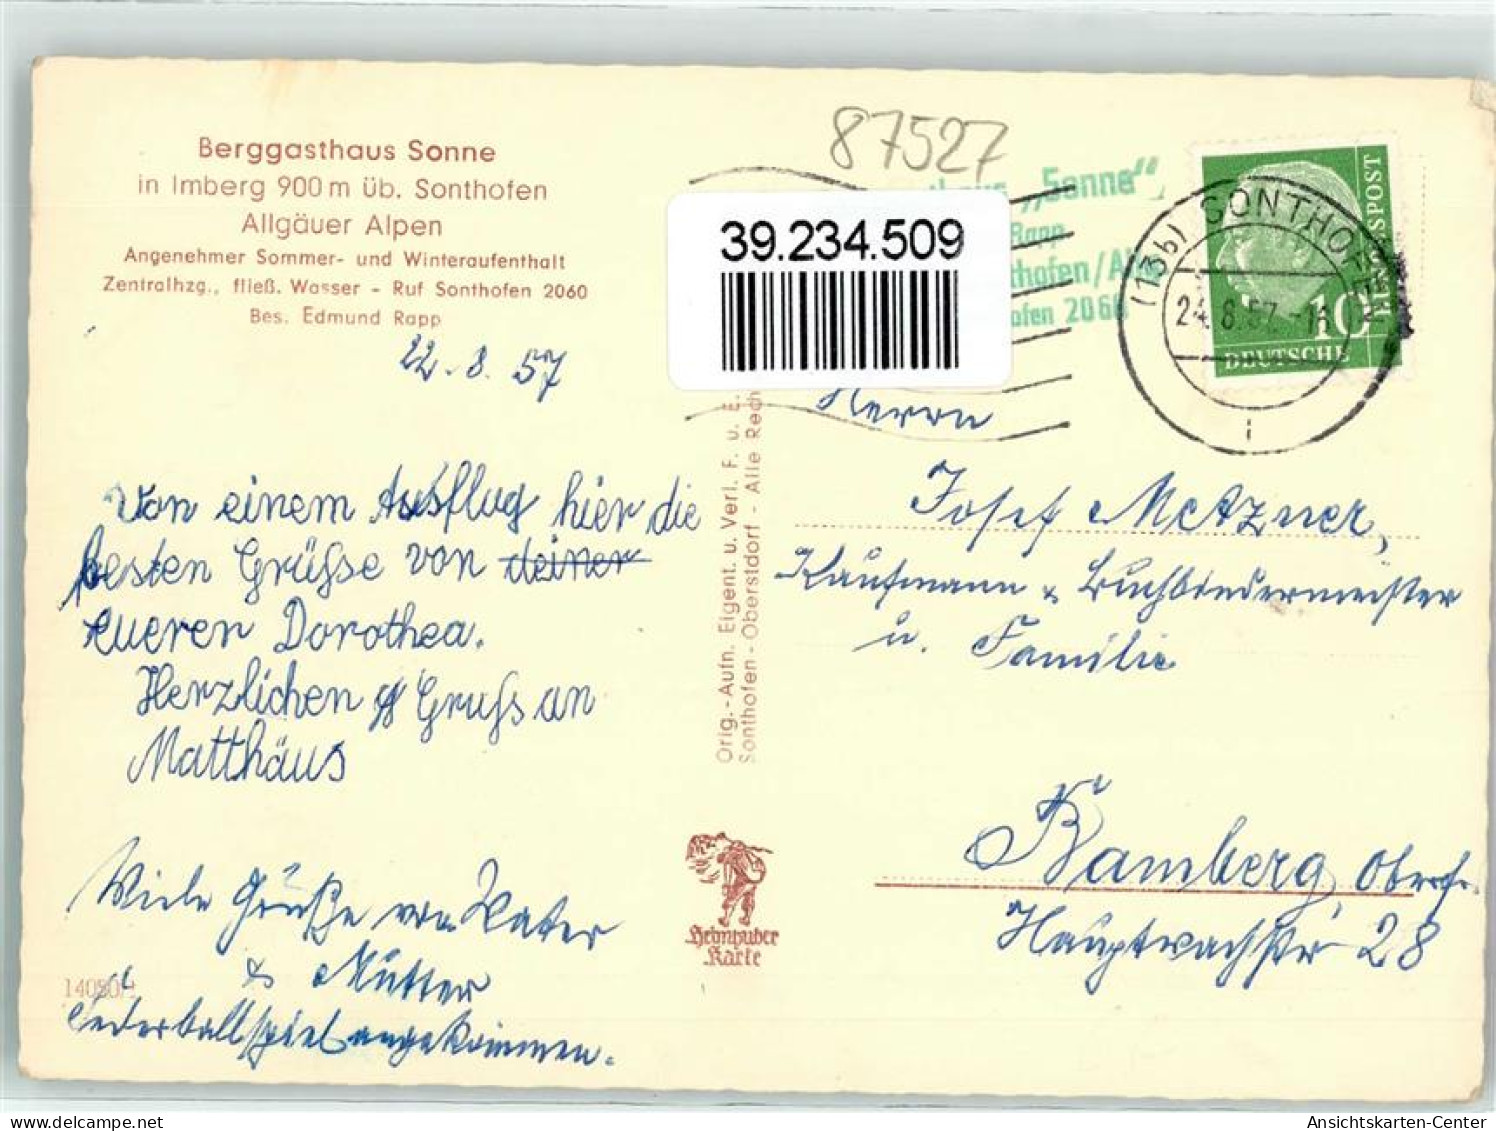 Berggasthaus Sonne
in Imberg 900 m üb. Sonthofen
Allgäuer Alpen
Angenehmer Sommer- und Winteraufenthalt
Zentralhzg., fließ. Wasser - Ruf Sonthofen 2060
Bes. Edmund Rapp
22.8.57
Von einem Ausflug hier die
besten Grüße von deiner
eueren Dorothea.
Herzlichen Gruß an
Matthäus
Viele Grüße von Vater
& Mutter
Federballspiel angekommen.
14080/1
Orig.-Aufn. Eigent. u. Verl. F. u. E.
Sonthofen - Oberstdorf - Alle Rech
Heimhuber
Karte
87527
39.234.509
„Sonne“
Rapp
thofen/Al
ofen 2060
(13b) SONTHOFEN
24.8.57.-16
i
DEUTSCHE BUNDESPOST
10
Herrn
Josef Metzner,
Kaufmann & Buchbindermeister
u. Familie
Bamberg, Oberfr.
Hauptwachstr 28
oldthing.com
Ansichtskarten-Center